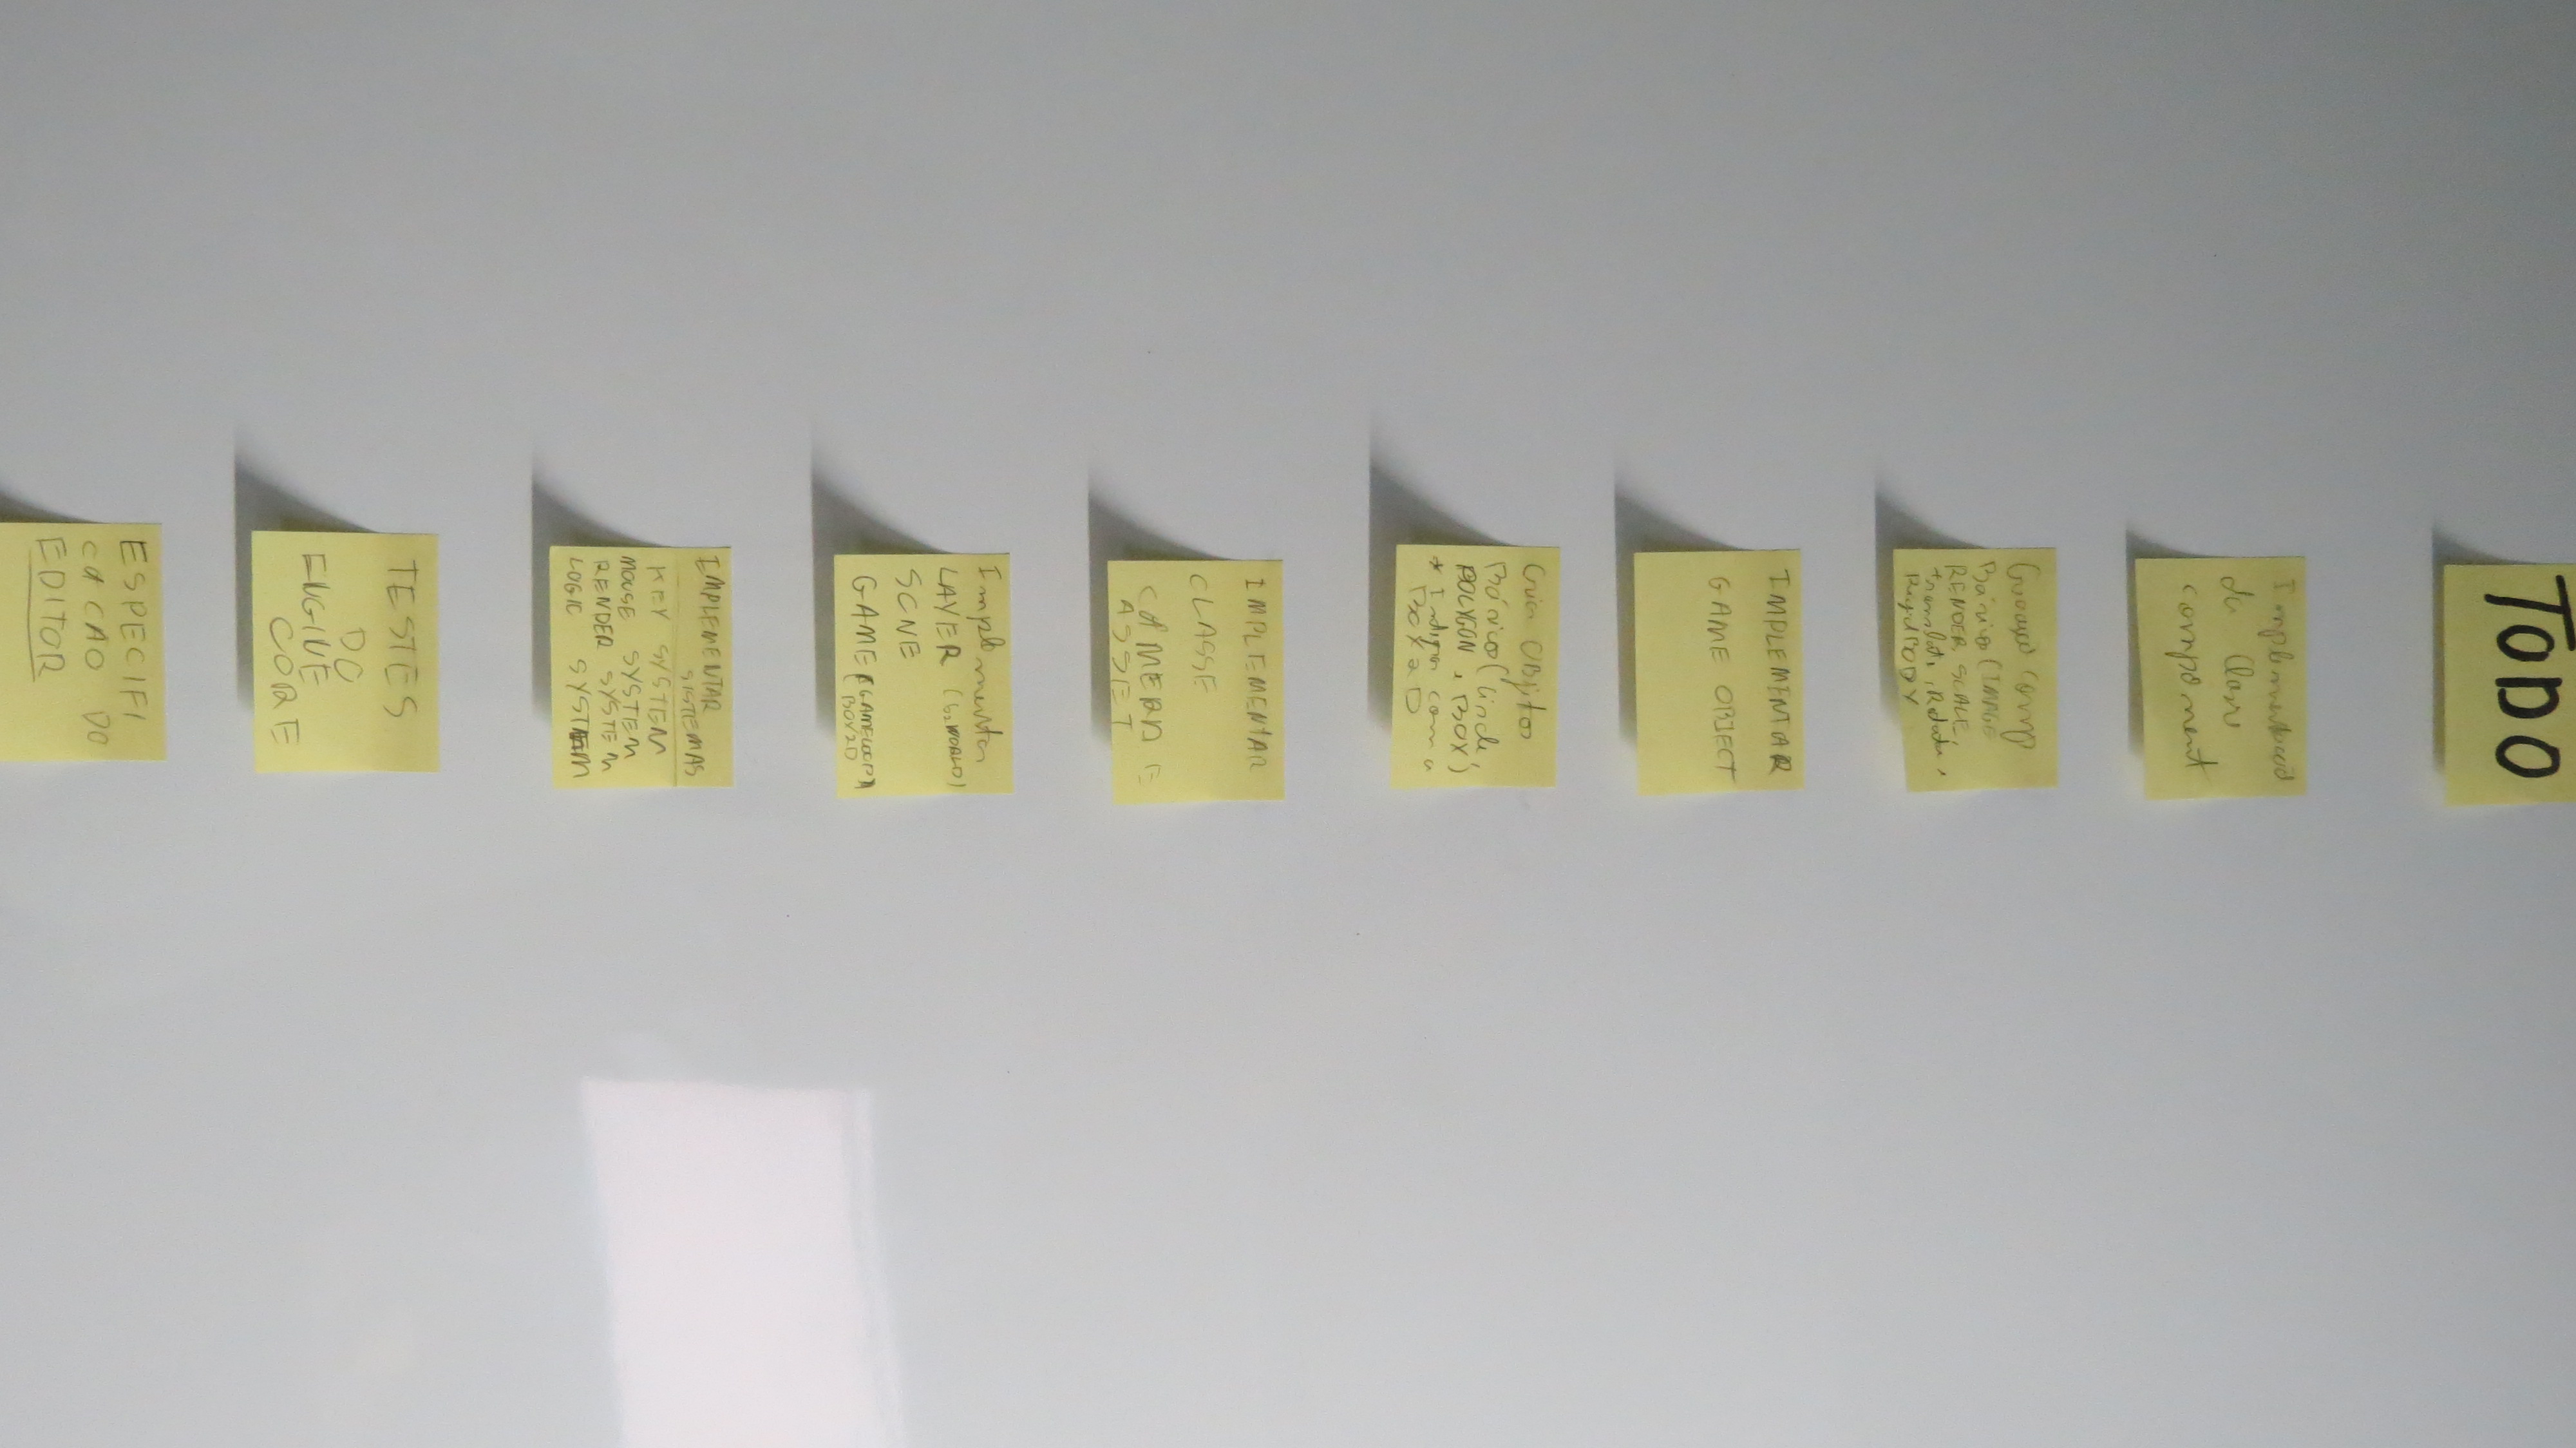 TODO
Implementacao
da Classe
component
Criacao comp
Básico (IMAGE
RENDER, SCALE,
translate, Rotate,
RigidBODY
IMPLEMENTAR
GAME OBJECT
Criar OBjetos
Básico (Circle,
POLYGON, BOX)
* Integrar com a
BOX2D
IMPLEMENTAR
CLASSE
CAMERA E
ASSET
Implementar
LAYER (b2WORLD)
SCNE
GAME (GAMELOOP)
BOX2D
IMPLEMENTAR
SISTEMAS
KEY SYSTEM
MOUSE SYSTEM
RENDER SYSTEM
LOGIC SYSTEM
TESTES
DO
ENGINE
CORE
ESPECIFI
CACAO DO
EDITOR